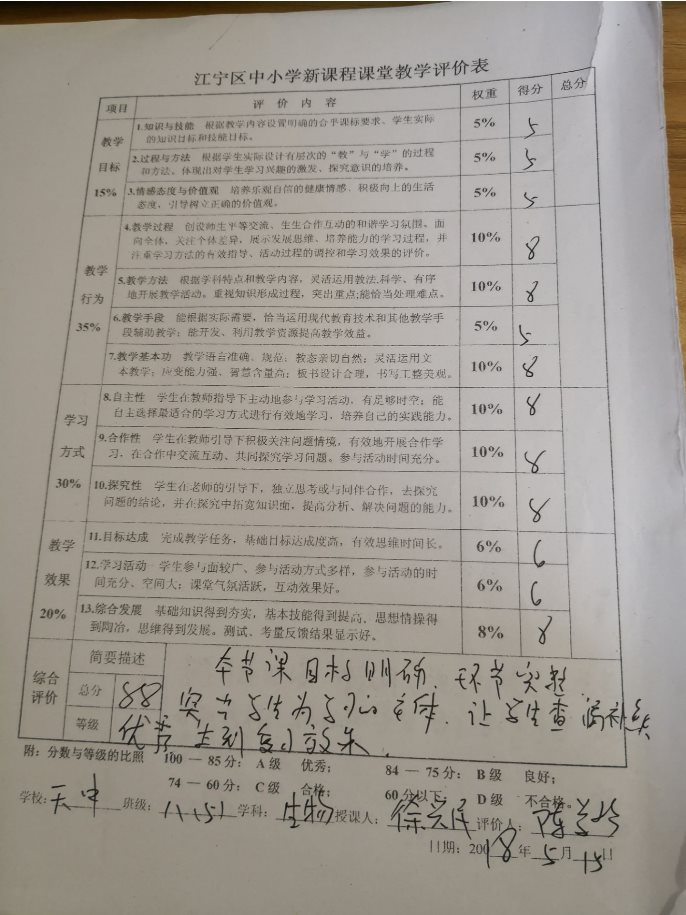 江宁区中小学新课程课堂教学评价表
项目 评 价 内 容 权重 得分 总分
教学目标 15%
1.知识与技能 根据教学内容设置明确的合乎课标要求、学生实际 5% 5
的知识目标和技能目标。
2.过程与方法 根据学生实际设计有层次的“教”与“学”的过程 5% 5
和方法。体现出对学生学习兴趣的激发、探究意识的培养。
3.情感态度与价值观 培养乐观自信的健康情感、积极向上的生活 5% 5
态度、引导树立正确的价值观。
教学行为 35%
4.教学过程 创设师生平等交流、生生合作互动的和谐学习氛围、面 10% 8
向全体,关注个体差异,展示发展思维、培养能力的学习过程,并
注重学习方法的有效指导、活动过程的调控和学习效果的评价。
5.教学方法 根据学科特点和教学内容,灵活运用教法.科学、有序 10% 8
地开展教学活动。重视知识形成过程,突出重点;能恰当处理难点。
6.教学手段 能根据实际需要,恰当运用现代教育技术和其他教学手 5% 5
段辅助教学;能开发、利用教学资源提高教学效益。
7.教学基本功 教学语言准确、规范;教态亲切自然;灵活运用文 10% 8
本教学;应变能力强、智慧含量高;板书设计合理,书写工整美观。
学习方式 30%
8.自主性 学生在教师指导下主动地参与学习活动,有足够时空;能 10% 8
自主选择最适合的学习方式进行有效地学习,培养自己的实践能力。
9.合作性 学生在教师引导下积极关注问题情境,有效地开展合作学 10% 8
习、在合作中交流互动、共同探究学习问题。参与活动时间充分。
10.探究性 学生在老师的引导下,独立思考或与同伴合作,去探究 10% 8
问题的结论,并在探究中拓宽知识面,提高分析、解决问题的能力。
教学效果 20%
11.目标达成 完成教学任务,基础目标达成度高,有效思维时间长。 6% 6
12.学习活动 学生参与面较广、参与活动方式多样,参与活动的时 6% 6
间充分、空间大;课堂气氛活跃,互动效果好。
13.综合发展 基础知识得到夯实,基本技能得到提高、思想情操得 8% 8
到陶冶,思维得到发展。测试、考量反馈结果显示好。
综合评价 简要描述 本节课目标明确、环节完整
总分 88 突出学生为学习的主体、让学生查漏补缺
等级 优秀 达到复习效果.
附:分数与等级的比照 100 — 85分: A级 优秀; 84 — 75分: B级 良好;
74 — 60分: C级 合格; 60分以下: D级 不合格。
学校:天中 班级: 学科:生物 授课人:徐兴民 评价人:陈
日期:20018年5月15日